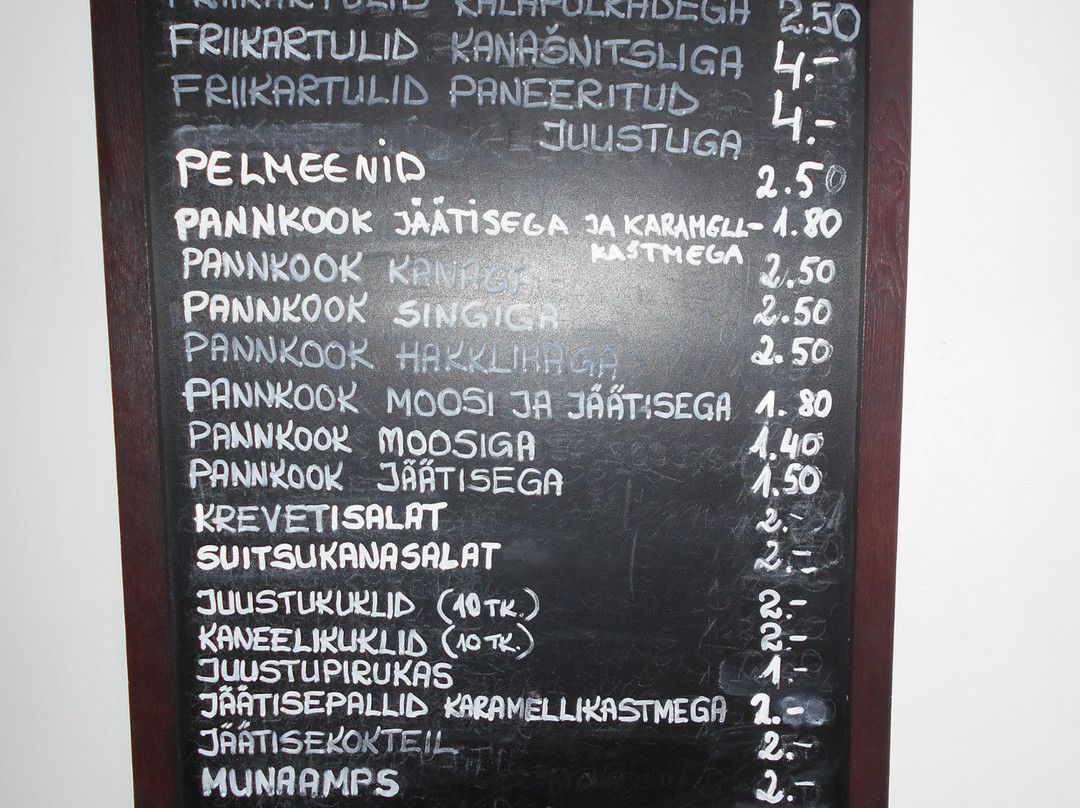 FRIIKARTULID KALAPULKADEGA 2.50
FRIIKARTULID KANAŠNITSLIGA 4.-
FRIIKARTULID PANEERITUD
JUUSTUGA 4.-
PELMEENID 2.50
PANNKOOK JÄÄTISEGA JA KARAMELL- 1.80
KASTMEGA
PANNKOOK KANAGA 2.50
PANNKOOK SINGIGA 2.50
PANNKOOK HAKKLIHAGA 2.50
PANNKOOK MOOSI JA JÄÄTISEGA 1.80
PANNKOOK MOOSIGA 1.40
PANNKOOK JÄÄTISEGA 1.50
KREVETISALAT 2.-
SUITSUKANASALAT 2.-
JUUSTUKUKLID (10 TK.) 2.-
KANEELIKUKLID (10 TK.) 2.-
JUUSTUPIRUKAS 1.-
JÄÄTISEPALLID KARAMELLIKASTMEGA 2.-
JÄÄTISEKOKTEIL 2.-
MUNAAMPS 2.-